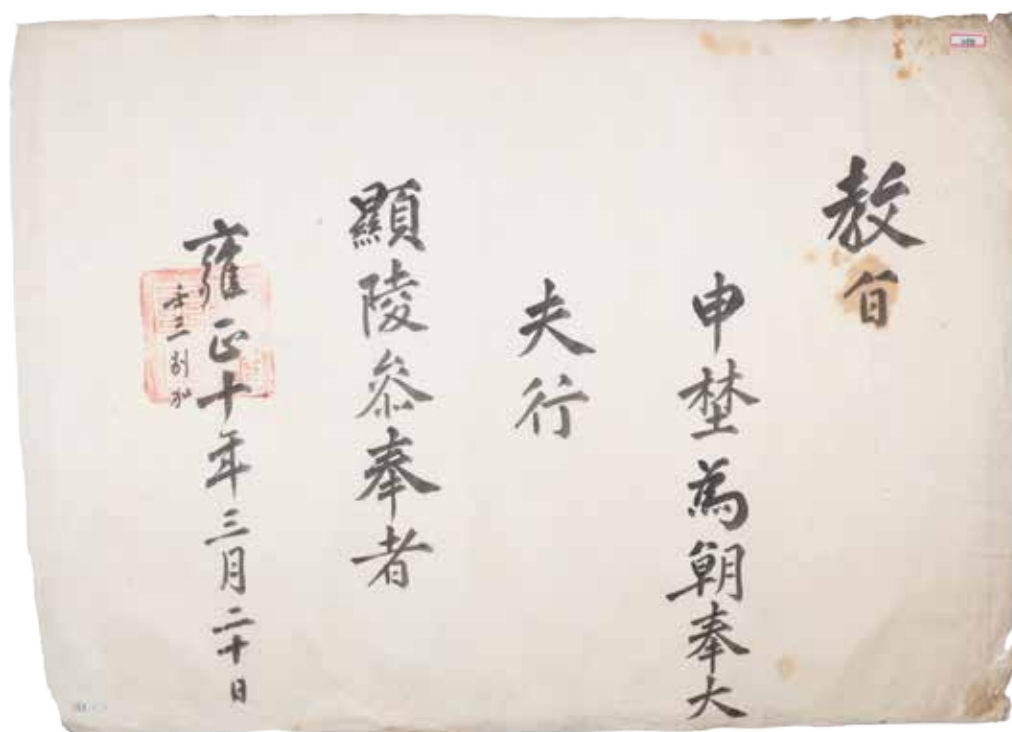 教旨
申埜為朝奉大
夫行
顯陵叅奉者
雍正十年三月二十日
壬三別加